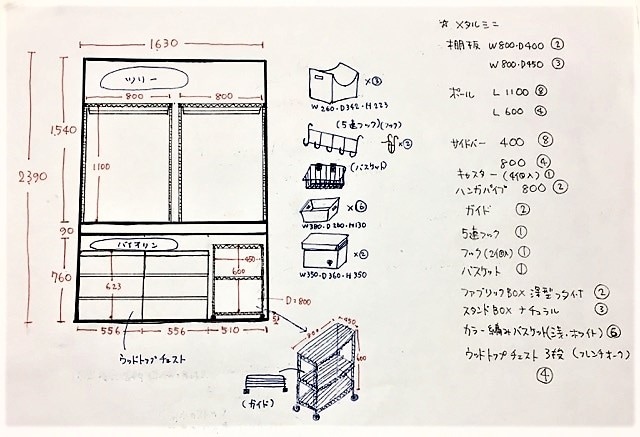 1630
ツリー
800
800
1540
1100
2390
90
760
バイオリン
623
450
600
D:800
556
556
510
ウッドトップチェスト
×③
W260・D342・H223
(5連フック)(フック)
×②
(バスケット)
×⑥
W380・D260・H130
×②
W350・D360・H350
800
450
600
(ガイド)
☆ メタルミニ
棚板 W800・D400 ②
W800・D450 ③
ポール L1100 ⑧
L600 ④
サイドバー 400 ⑧
800 ④
キャスター(4個入) ①
ハンガーパイプ 800 ②
ガイド ②
5連フック ①
フック(2個入) ①
バスケット ①
ファブリックBOX 深型フタ付 ②
スタンドBOX ナチュラル ③
カラー編みバスケット(浅・ホワイト) ⑥
ウッドトップチェスト 3段 (フレンチオーク)
④